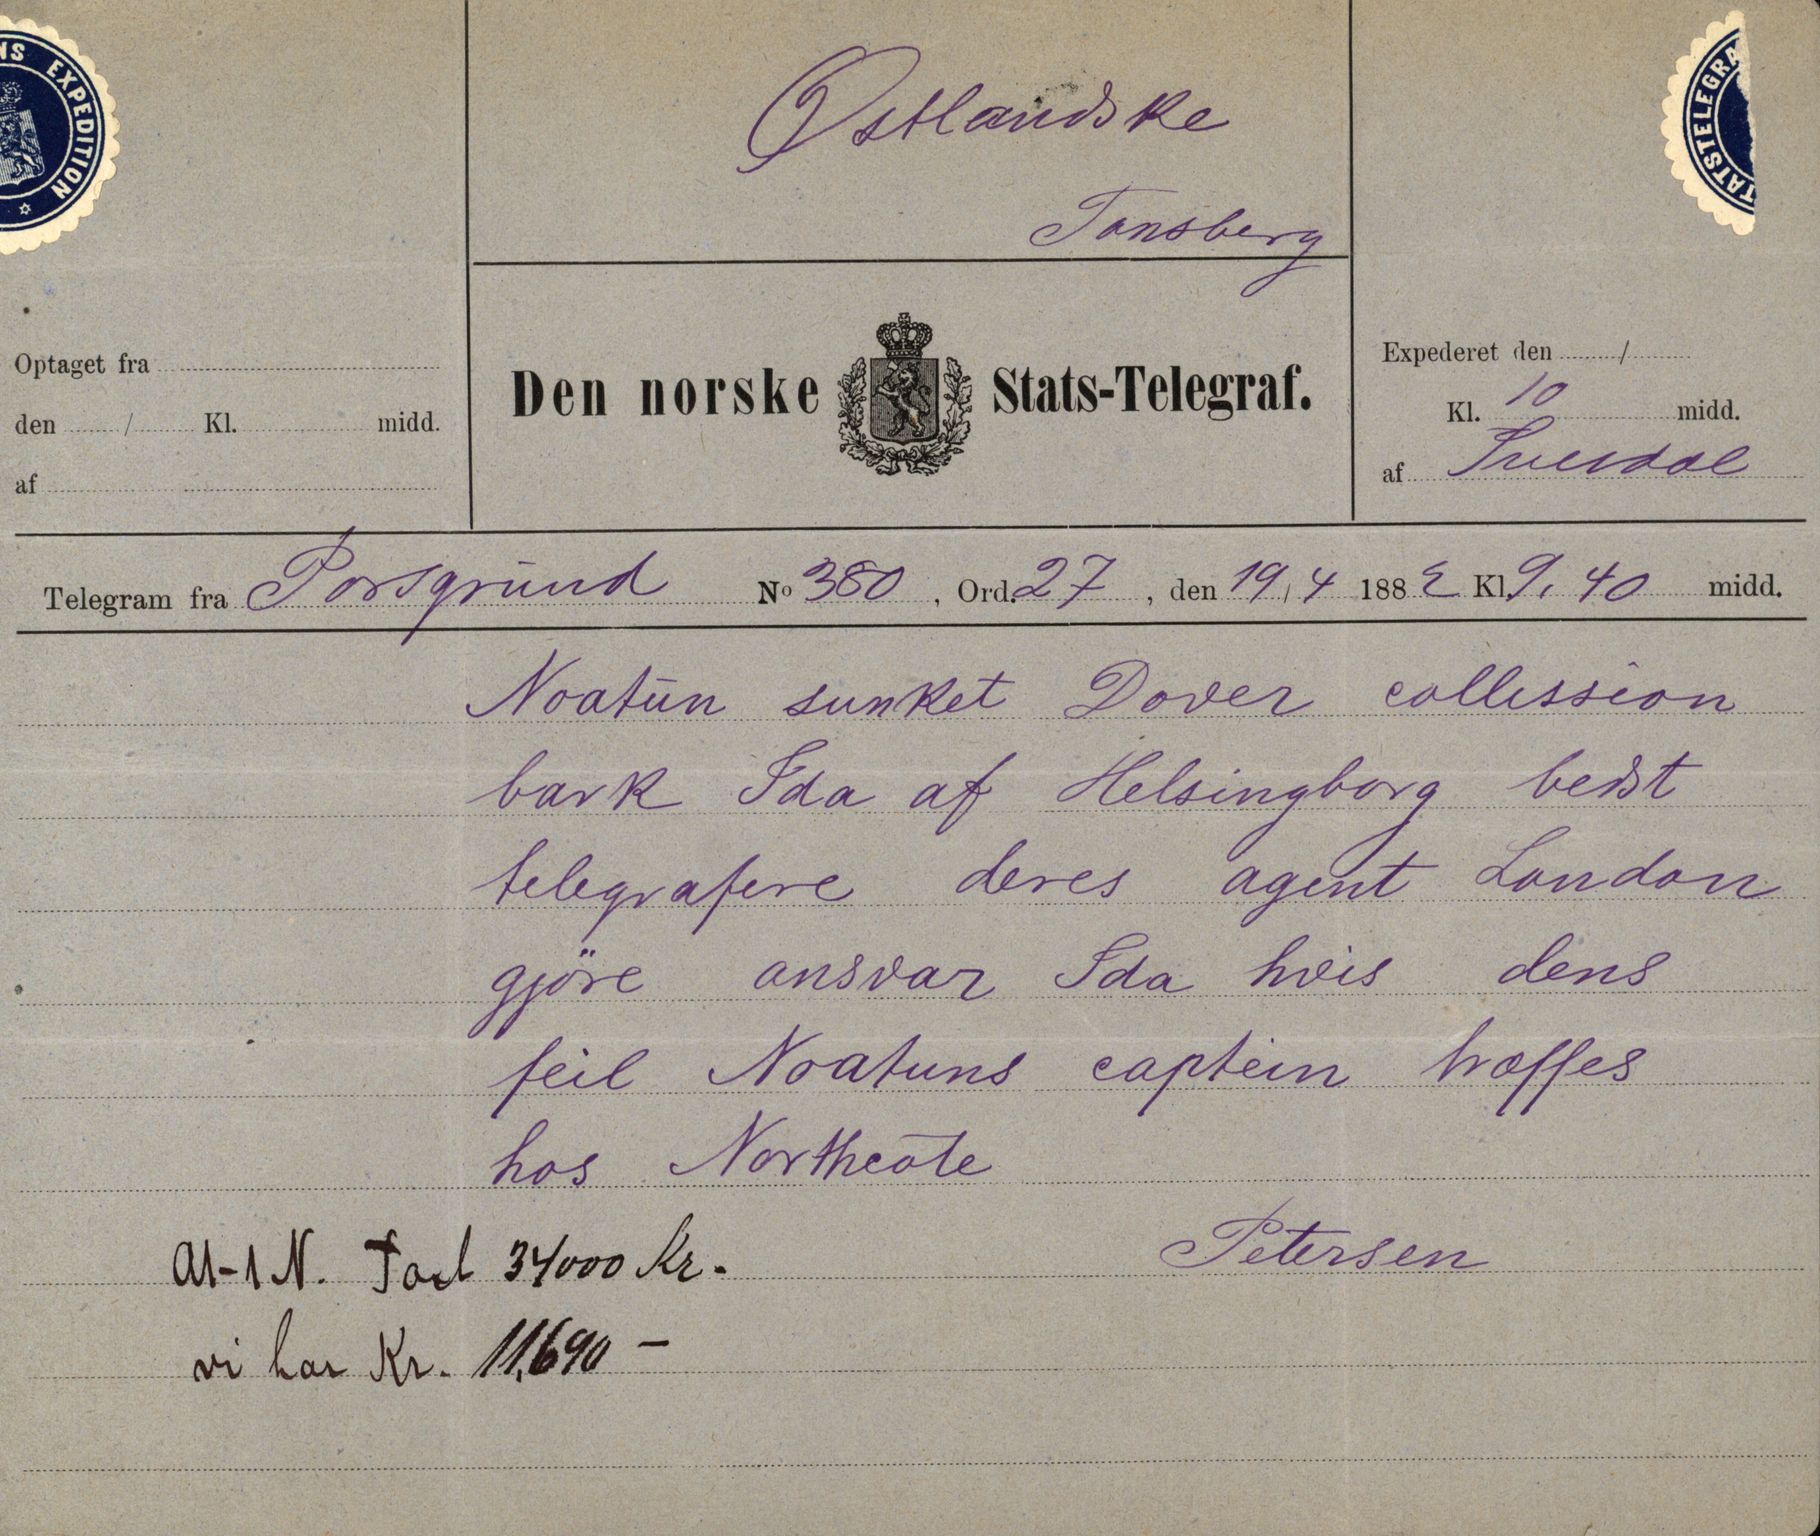 NS EXPEDITION
TATSTELEGRA
Østlandske
Tønsberg
Optaget fra
den / Kl. midd.
af
Den norske Stats-Telegraf.
Expederet den /
Kl. 10 midd.
af
Telegram fra Porsgrund No 380, Ord. 27, den 19/4 1882 Kl. 9.40 midd.
Noatun sunket Dover collission
bark Ida af Helsingborg bedst
telegrafere deres agent London
gjöre ansvar Ida hvis dens
feil Noatuns captein træffes
hos Northcote
Petersen
A1-1 N. 34000 Kr.
vi har Kr. 11,690 —